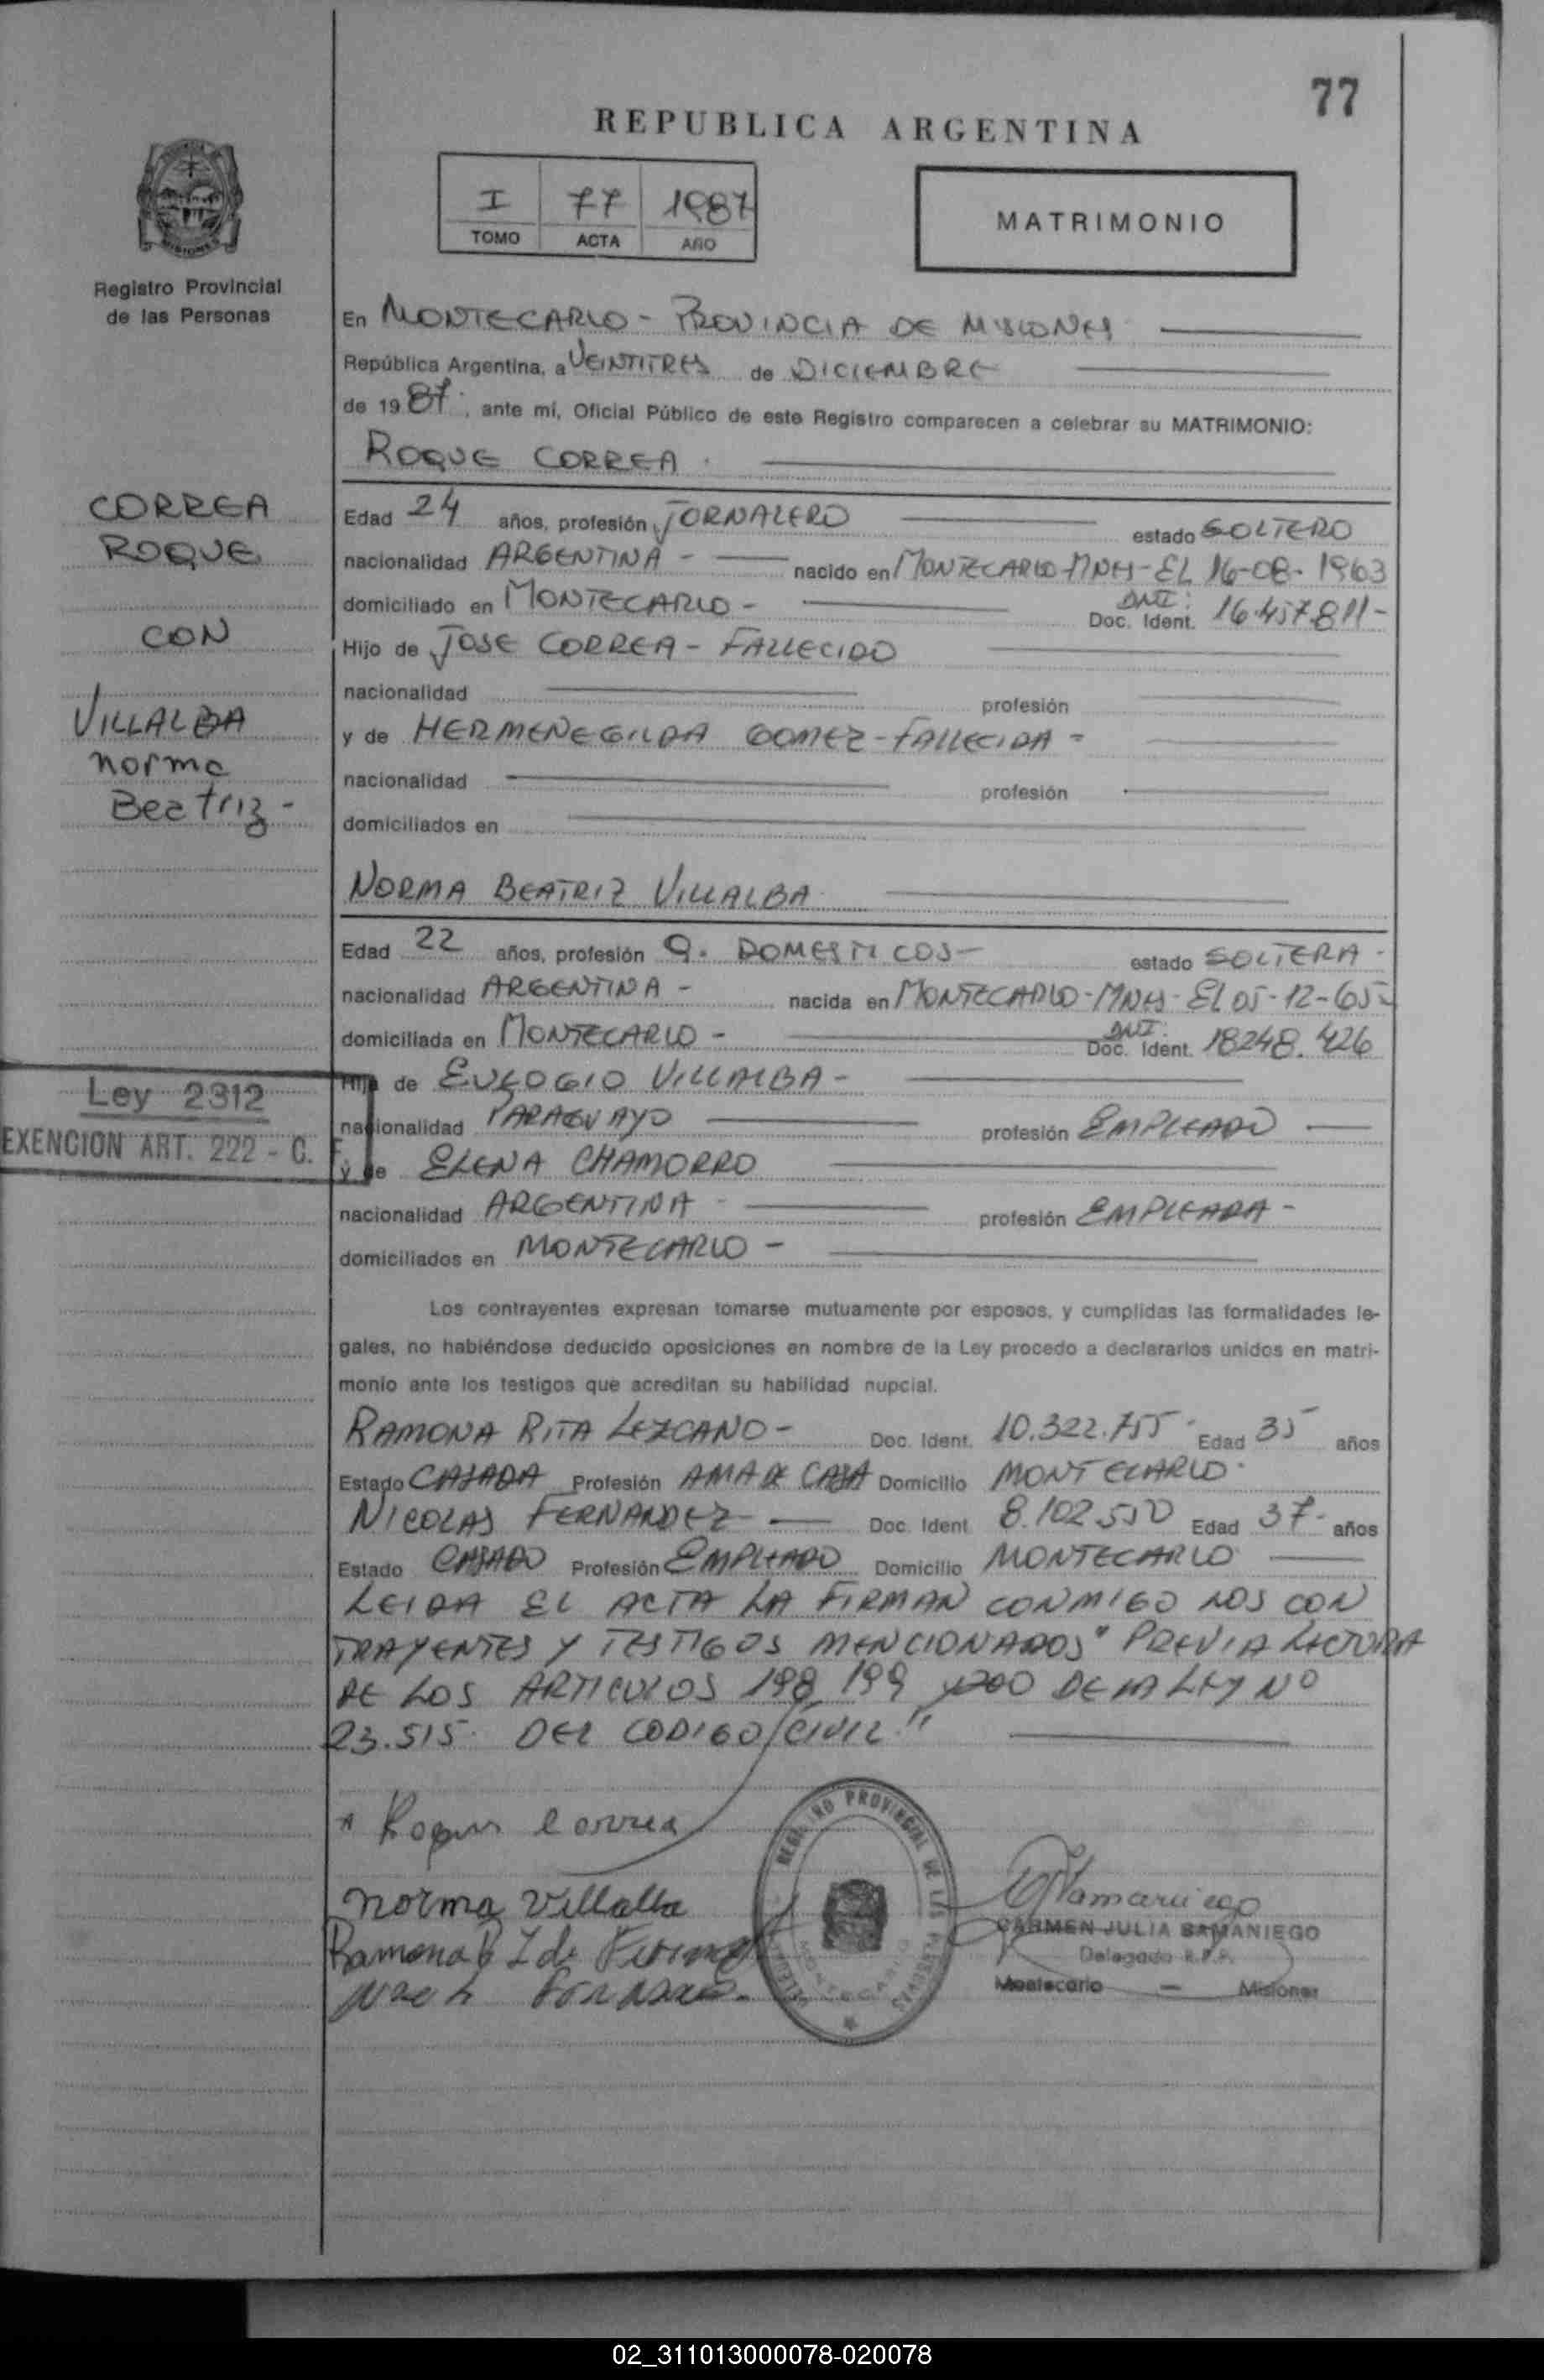 77
REPUBLICA ARGENTINA
I 77 1987
TOMO ACTA AÑO
MATRIMONIO
MISIONES
Registro Provincial
de las Personas
En MONTECARLO - PROVINCIA DE MISIONES
República Argentina, a VEINTITRES de DICIEMBRE
de 19 87, ante mí, Oficial Público de este Registro comparecen a celebrar su MATRIMONIO:
ROQUE CORREA
CORREA
ROQUE
CON
VILLALBA
Norma
Beatriz -
Edad 24 años, profesión JORNALERO estado SOLTERO
nacionalidad ARGENTINA - nacido en MONTECARLO-MNES-EL 16-08-1963
domiciliado en MONTECARLO - DNI: Doc. Ident. 16.457.811-
Hijo de JOSE CORREA - FALLECIDO
nacionalidad profesión
y de HERMENEGILDA GOMEZ - FALLECIDA -
nacionalidad profesión
domiciliados en
NORMA BEATRIZ VILLALBA
Edad 22 años, profesión Q. DOMESTICOS - estado SOLTERA -
nacionalidad ARGENTINA - nacida en MONTECARLO-MNES-EL 05-12-65-
domiciliada en MONTECARLO - DNI. Doc. Ident. 18248.426
Ley 2312
EXENCION ART. 222 - C. F.
Hija de EULOGIO VILLALBA -
nacionalidad PARAGUAYO profesión EMPLEADO
y de ELENA CHAMORRO
nacionalidad ARGENTINA - profesión EMPLEADA -
domiciliados en MONTECARLO -
Los contrayentes expresan tomarse mutuamente por esposos, y cumplidas las formalidades le-
gales, no habiéndose deducido oposiciones en nombre de la Ley procedo a declararlos unidos en matri-
monio ante los testigos que acreditan su habilidad nupcial.
RAMONA RITA LEZCANO - Doc. Ident. 10.322.755 Edad 35 años
Estado CASADA Profesión AMA DE CASA Domicilio MONTECARLO
NICOLAS FERNANDEZ Doc. Ident 8.102.550 Edad 37 años
Estado CASADO Profesión EMPLEADO Domicilio MONTECARLO
LEIDA EL ACTA LA FIRMAN CONMIGO LOS CON
TRAYENTES Y TESTIGOS MENCIONADOS" PREVIA LECTURA
DE LOS ARTICULOS 198, 199 y 200 DE LA LEY Nº
23.515 DEL CODIGO CIVIL"
Roque Correa
Norma Villalba
REGISTRO PROVINCIAL DE LAS PERSONAS
MONTECARLO
CARMEN JULIA SAMANIEGO
Delegado R.P.P.
Montecarlo - Misiones
02_311013000078-020078